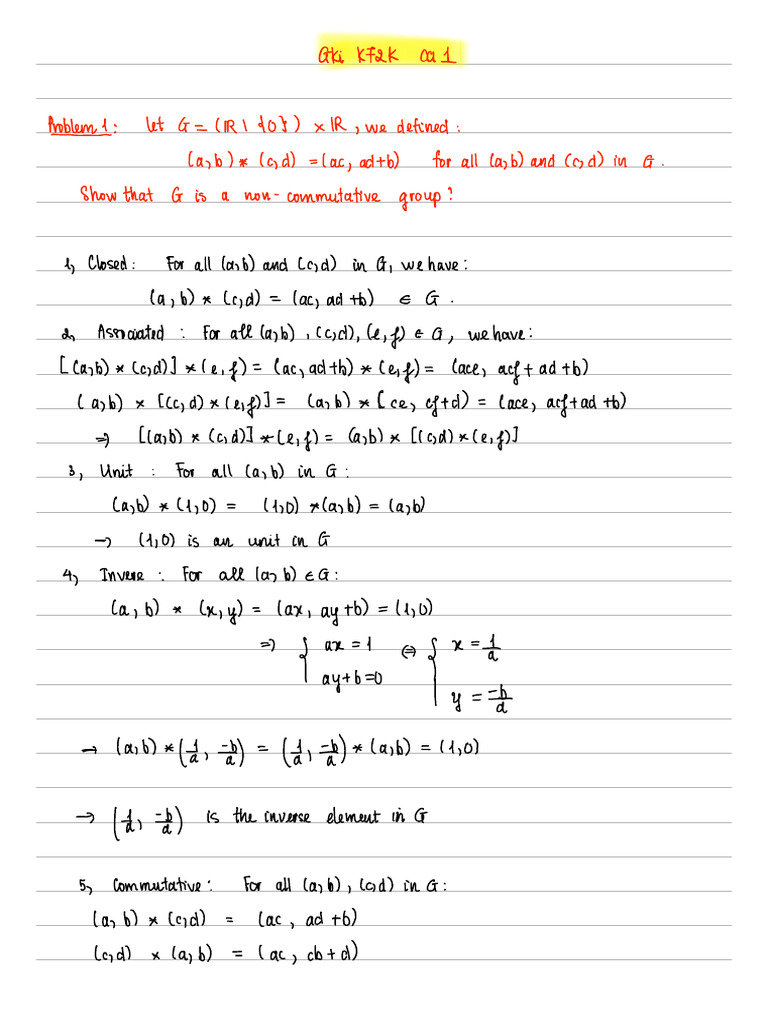 Gki K72K ca 1
Problem 1: let G = (ℝ \ {0}) × ℝ, we defined:
(a,b) * (c,d) = (ac, ad+b) for all (a,b) and (c,d) in G.
Show that G is a non-commutative group?
1, Closed: For all (a,b) and (c,d) in G, we have:
(a,b) * (c,d) = (ac, ad+b) ∈ G.
2, Associated: For all (a,b), (c,d), (e,f) ∈ G, we have:
[(a,b) * (c,d)] * (e,f) = (ac, ad+b) * (e,f) = (ace, acf + ad+b)
(a,b) * [(c,d) * (e,f)] = (a,b) * [ce, cf+d) = (ace, acf+ad+b)
=> [(a,b) * (c,d)] * (e,f) = (a,b) * [(c,d) * (e,f)]
3, Unit: For all (a,b) in G:
(a,b) * (1,0) = (1,0) * (a,b) = (a,b)
→ (1,0) is an unit in G
4, Invere: For all (a,b) ∈ G:
(a,b) * (x,y) = (ax, ay+b) = (1,0)
=> { ax = 1 ⇔ { x = 1/a
ay+b=0 y = -b/a
→ (a,b) * (1/a, -b/a) = (1/a, -b/a) * (a,b) = (1,0)
→ (1/a, -b/a) is the inverse element in G
5, Commutative: For all (a,b), (c,d) in G:
(a,b) * (c,d) = (ac, ad+b)
(c,d) * (a,b) = (ac, cb+d)